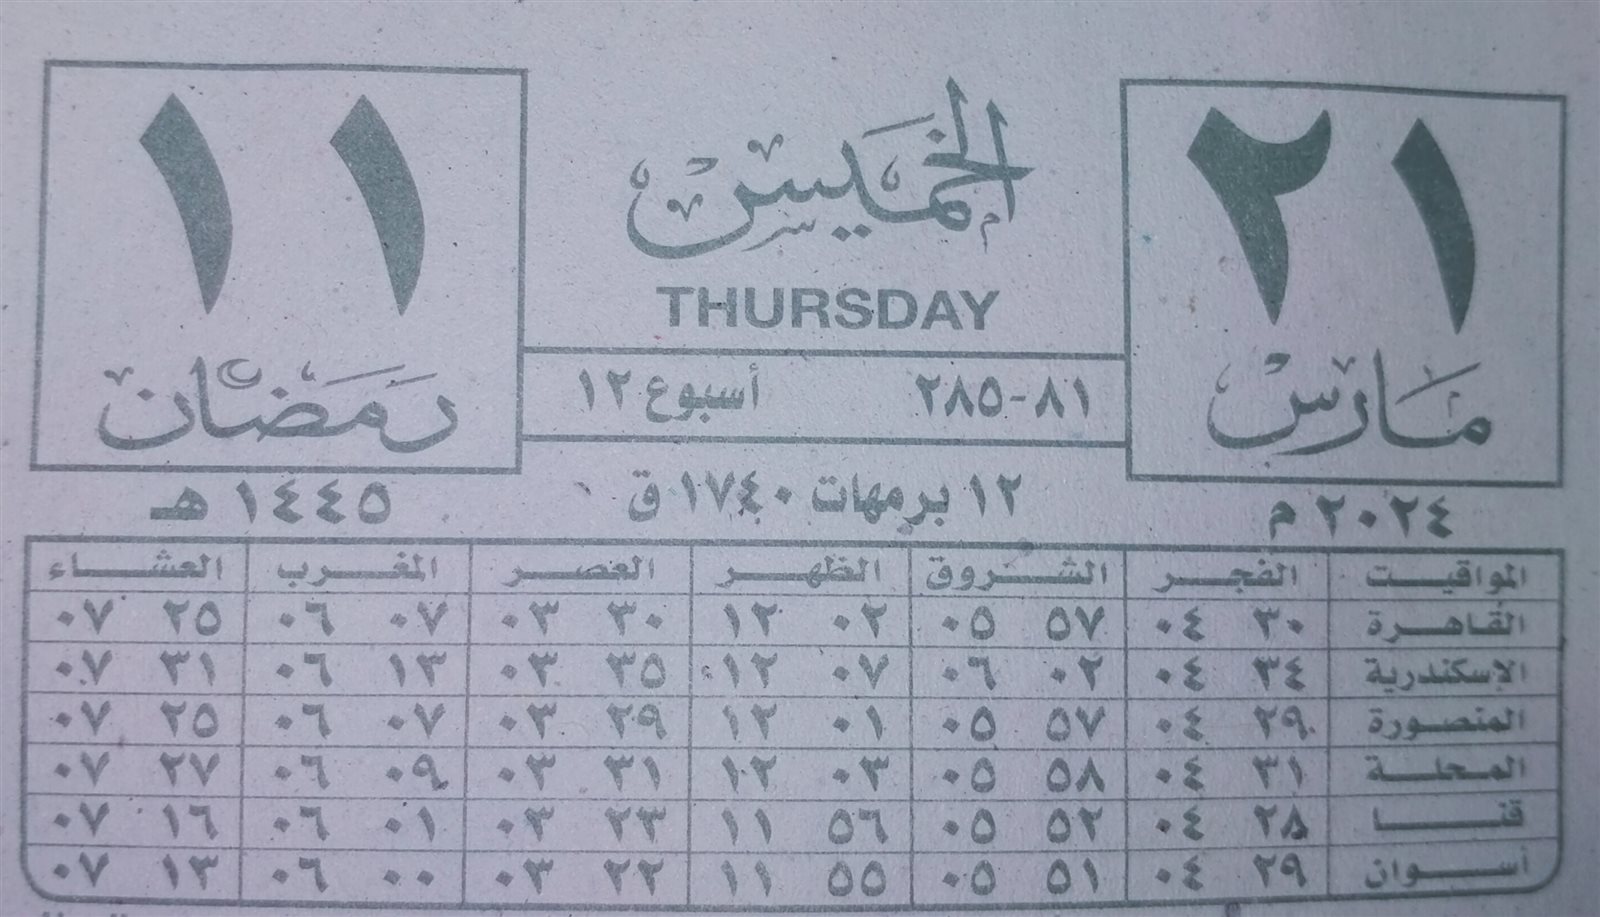 ٢١
مارس
٢٠٢٤ م
الخميس
THURSDAY
٨١-٢٨٥ أسبوع ١٢
١٢ برمهات ١٧٤٠ ق
١١
رمضان
١٤٤٥ هـ
المواقيت الفجر الشروق الظهر العصر المغرب العشاء
القاهرة ٣٠ ٠٤ ٥٧ ٠٥ ٠٢ ١٢ ٣٠ ٠٣ ٠٧ ٠٦ ٢٥ ٠٧
الإسكندرية ٣٤ ٠٤ ٠٢ ٠٦ ٠٧ ١٢ ٣٥ ٠٣ ١٣ ٠٦ ٣١ ٠٧
المنصورة ٢٩ ٠٤ ٥٧ ٠٥ ٠١ ١٢ ٢٩ ٠٣ ٠٧ ٠٦ ٢٥ ٠٧
المحلة ٣١ ٠٤ ٥٨ ٠٥ ٠٣ ١٢ ٣١ ٠٣ ٠٩ ٠٦ ٢٧ ٠٧
قنا ٢٨ ٠٤ ٥٢ ٠٥ ٥٦ ١١ ٢٣ ٠٣ ٠١ ٠٦ ١٦ ٠٧
أسوان ٢٩ ٠٤ ٥١ ٠٥ ٥٥ ١١ ٢٢ ٠٣ ٠٠ ٠٦ ١٣ ٠٧